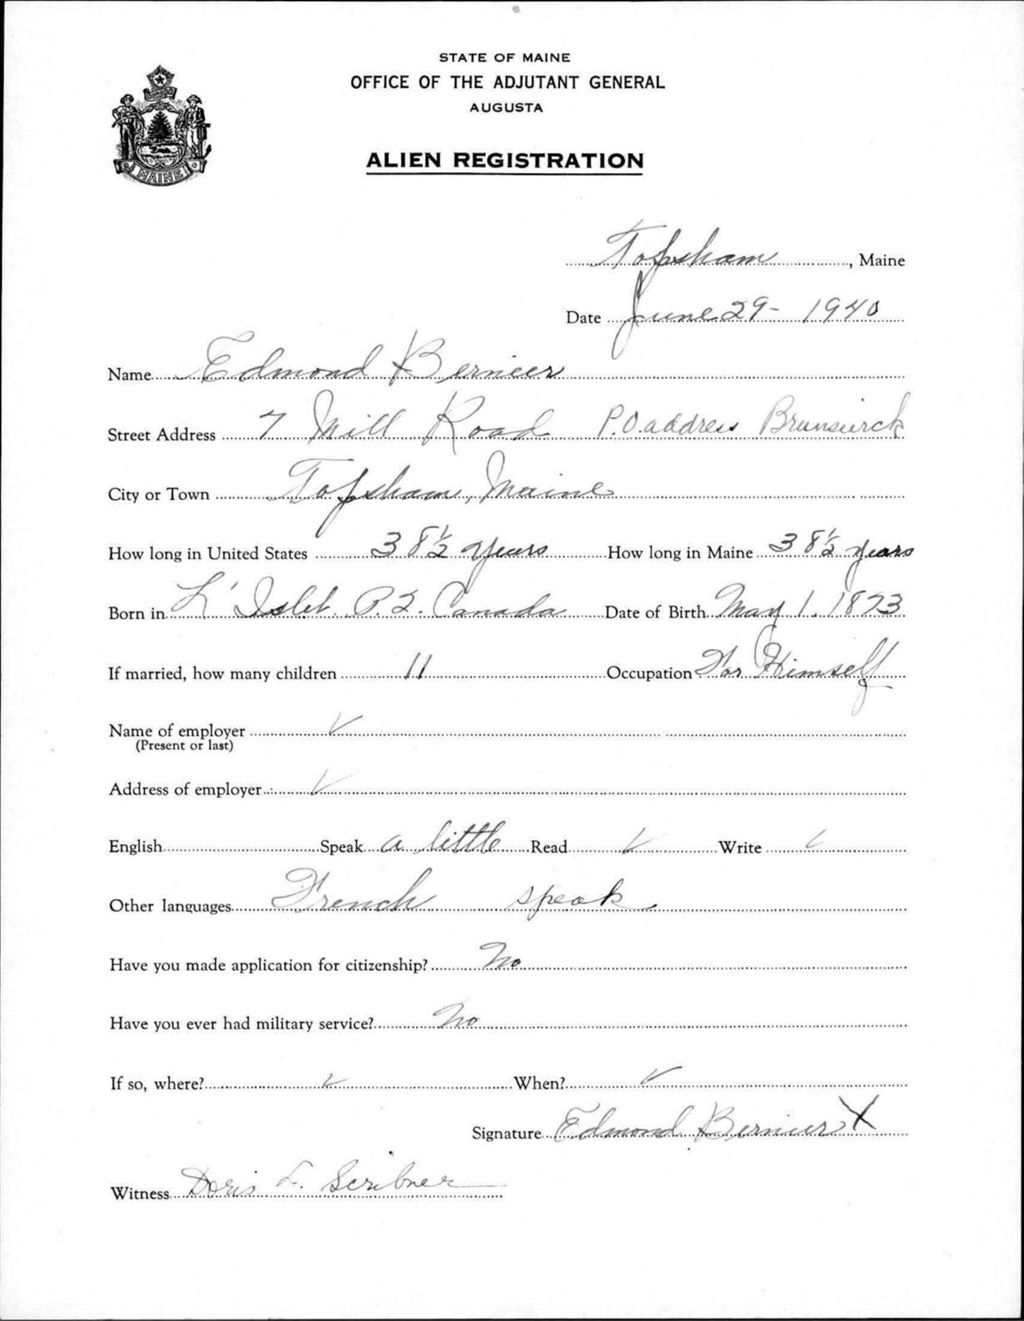 STATE OF MAINE
OFFICE OF THE ADJUTANT GENERAL
AUGUSTA
MAINE
ALIEN REGISTRATION
Topsham, Maine
Date June 29 - 1940
Name Edmond Bernier
Street Address 7 Mill Road P.O. address Brunswick
City or Town Topsham, Maine
How long in United States 38½ years How long in Maine 38½ years
Born in L'Islet P.Q. Canada Date of Birth May 1, 1873
If married, how many children 11 Occupation For Himself
Name of employer ✓
(Present or last)
Address of employer ✓
English Speak a little Read ✓ Write ✓
Other languages French speak
Have you made application for citizenship? No
Have you ever had military service? No
If so, where? ✓ When? ✓
Signature Edmond Bernier X
Witness Doris L. Scribner